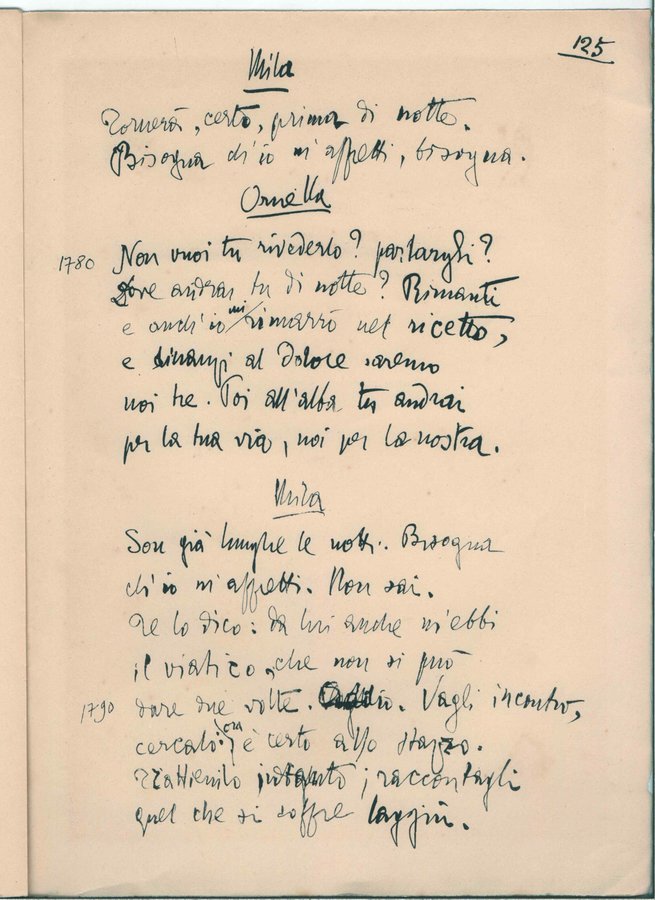 125
Mila
Tornerà, certo, prima di notte.
Bisogna ch'io m'affretti, bisogna.
Ornella
1780 Non vuoi tu rivederlo? parlargli?
Dove andrai tu di notte? Rimanti
e anch'io mi rimarrò nel ricetto,
e dinanzi al dolore saremo
noi tre. Poi all'alba tu andrai
per la tua via, noi per la nostra.
Mila
Son già lunghe le notti. Bisogna
ch'io m'affretti. Non sai.
Te lo dico: da lui anche m'ebbi
il viatico che non si può
1790 dare due volte. Addio. Vagli incontro,
cercalo: ora è certo allo stazzo.
Trattienilo intanto; raccontagli
quel che si soffre laggiù.